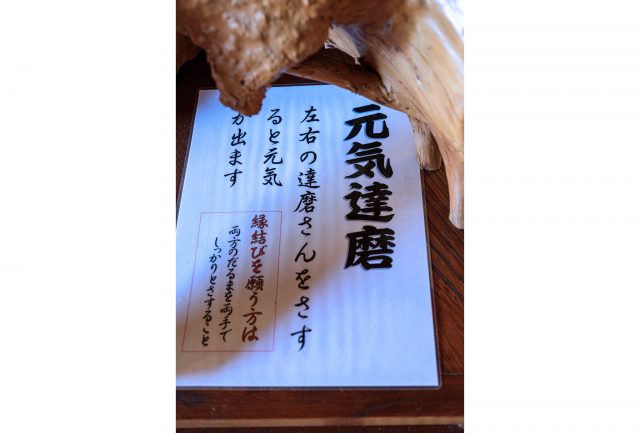 元気達磨
左右の達磨さんをさす
ると元気
が出ます
縁結びを願う方は
両方のだるまを両手で
しっかりとさすること